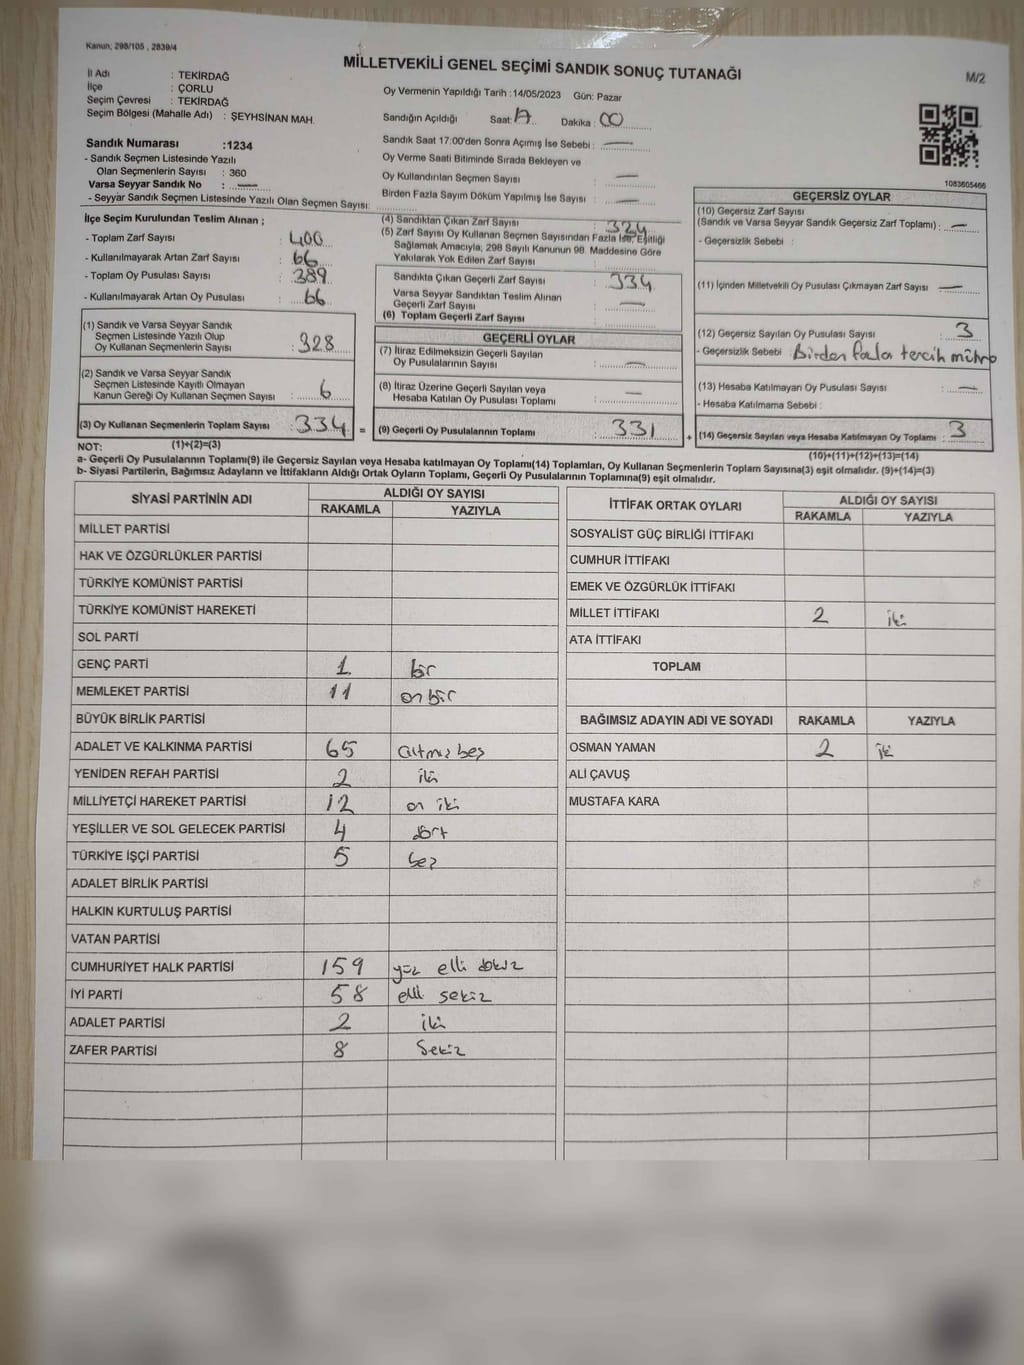 Kanun; 298/105 , 2839/4
MİLLETVEKİLİ GENEL SEÇİMİ SANDIK SONUÇ TUTANAĞI
M/2
İl Adı : TEKİRDAĞ
İlçe : ÇORLU
Seçim Çevresi : TEKİRDAĞ
Seçim Bölgesi (Mahalle Adı) : ŞEYHSİNAN MAH.
Oy Vermenin Yapıldığı Tarih :14/05/2023 Gün: Pazar
Sandığın Açıldığı Saat: Dakika : 00
Sandık Numarası :1234
- Sandık Seçmen Listesinde Yazılı
Olan Seçmenlerin Sayısı : 360
Varsa Seyyar Sandık No : —
- Seyyar Sandık Seçmen Listesinde Yazılı Olan Seçmen Sayısı:
Sandık Saat 17:00'den Sonra Açılmış İse Sebebi : —
Oy Verme Saati Bitiminde Sırada Bekleyen ve
Oy Kullandırılan Seçmen Sayısı : —
Birden Fazla Sayım Döküm Yapılmış İse Sayısı : —
1083605466
İlçe Seçim Kurulundan Teslim Alınan ;
- Toplam Zarf Sayısı : 400
- Kullanılmayarak Artan Zarf Sayısı : 66
- Toplam Oy Pusulası Sayısı : 389
- Kullanılmayarak Artan Oy Pusulası : 66
(1) Sandık ve Varsa Seyyar Sandık
Seçmen Listesinde Yazılı Olup
Oy Kullanan Seçmenlerin Sayısı : 328
(2) Sandık ve Varsa Seyyar Sandık
Seçmen Listesinde Kayıtlı Olmayan
Kanun Gereği Oy Kullanan Seçmen Sayısı : 6
(3) Oy Kullanan Seçmenlerin Toplam Sayısı : 334 =
(4) Sandıktan Çıkan Zarf Sayısı : 324
(5) Zarf Sayısı Oy Kullanan Seçmen Sayısından Fazla İse, Eşitliği
Sağlamak Amacıyla, 298 Sayılı Kanunun 98. Maddesine Göre
Yakılarak Yok Edilen Zarf Sayısı :
Sandıkta Çıkan Geçerli Zarf Sayısı : 334
Varsa Seyyar Sandıktan Teslim Alınan
Geçerli Zarf Sayısı : —
(6) Toplam Geçerli Zarf Sayısı :
GEÇERLİ OYLAR
(7) İtiraz Edilmeksizin Geçerli Sayılan
Oy Pusulalarının Sayısı : —
(8) İtiraz Üzerine Geçerli Sayılan veya
Hesaba Katılan Oy Pusulası Toplamı : —
(9) Geçerli Oy Pusulalarının Toplamı : 331 +
GEÇERSİZ OYLAR
(10) Geçersiz Zarf Sayısı
(Sandık ve Varsa Seyyar Sandık Geçersiz Zarf Toplamı) : —
- Geçersizlik Sebebi :
(11) İçinden Milletvekili Oy Pusulası Çıkmayan Zarf Sayısı : —
(12) Geçersiz Sayılan Oy Pusulası Sayısı : 3
- Geçersizlik Sebebi : Birden fazla tercih
(13) Hesaba Katılmayan Oy Pusulası Sayısı : —
- Hesaba Katılmama Sebebi :
(14) Geçersiz Sayılan veya Hesaba Katılmayan Oy Toplamı : 3
NOT: (1)+(2)=(3)
(10)+(11)+(12)+(13)=(14)
a- Geçerli Oy Pusulalarının Toplamı(9) ile Geçersiz Sayılan veya Hesaba katılmayan Oy Toplamı(14) Toplamları, Oy Kullanan Seçmenlerin Toplam Sayısına(3) eşit olmalıdır. (9)+(14)=(3)
b- Siyasi Partilerin, Bağımsız Adayların ve İttifakların Aldığı Ortak Oyların Toplamı, Geçerli Oy Pusulalarının Toplamına(9) eşit olmalıdır.
SİYASİ PARTİNİN ADI ALDIĞI OY SAYISI
RAKAMLA YAZIYLA
MİLLET PARTİSİ
HAK VE ÖZGÜRLÜKLER PARTİSİ
TÜRKİYE KOMÜNİST PARTİSİ
TÜRKİYE KOMÜNİST HAREKETİ
SOL PARTİ
GENÇ PARTİ 1 bir
MEMLEKET PARTİSİ 11 on bir
BÜYÜK BİRLİK PARTİSİ
ADALET VE KALKINMA PARTİSİ 65 altmış beş
YENİDEN REFAH PARTİSİ 2 iki
MİLLİYETÇİ HAREKET PARTİSİ 12 on iki
YEŞİLLER VE SOL GELECEK PARTİSİ 4 dört
TÜRKİYE İŞÇİ PARTİSİ 5 beş
ADALET BİRLİK PARTİSİ
HALKIN KURTULUŞ PARTİSİ
VATAN PARTİSİ
CUMHURİYET HALK PARTİSİ 159 yüz elli dokuz
İYİ PARTİ 58 elli sekiz
ADALET PARTİSİ 2 iki
ZAFER PARTİSİ 8 Sekiz
İTTİFAK ORTAK OYLARI ALDIĞI OY SAYISI
RAKAMLA YAZIYLA
SOSYALİST GÜÇ BİRLİĞİ İTTİFAKI
CUMHUR İTTİFAKI
EMEK VE ÖZGÜRLÜK İTTİFAKI
MİLLET İTTİFAKI 2 iki
ATA İTTİFAKI
TOPLAM
BAĞIMSIZ ADAYIN ADI VE SOYADI RAKAMLA YAZIYLA
OSMAN YAMAN 2 iki
ALİ ÇAVUŞ
MUSTAFA KARA